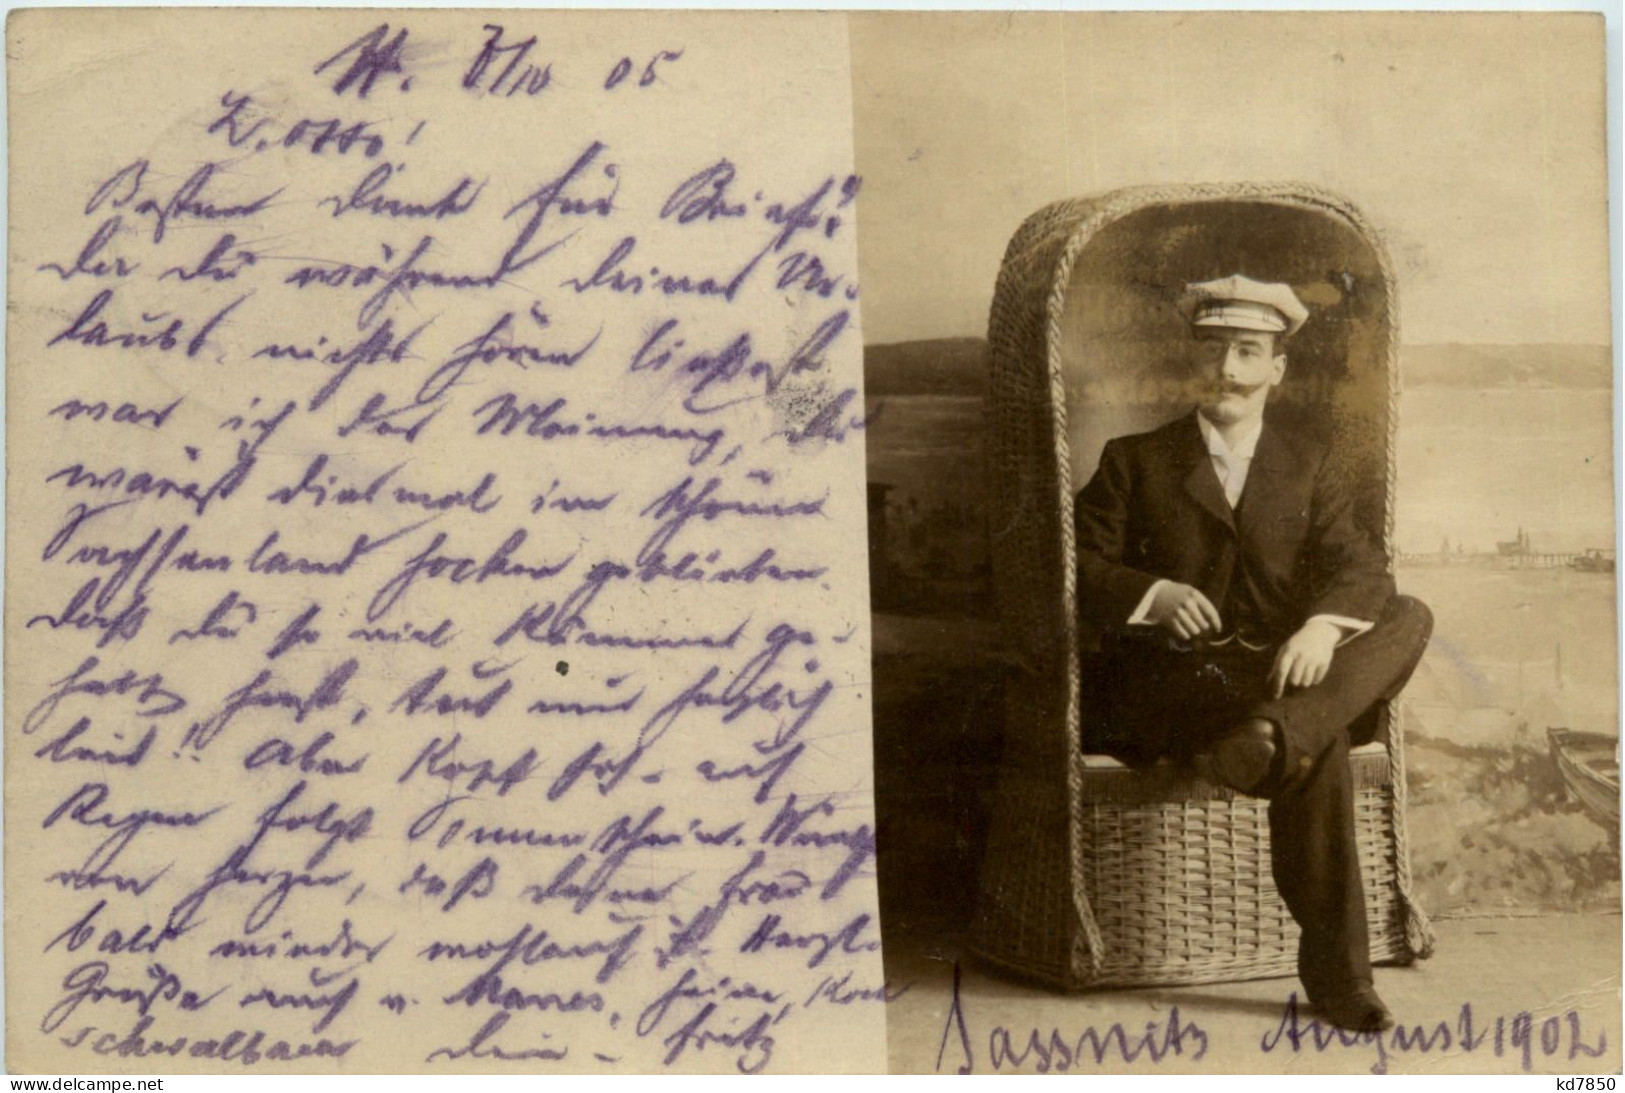 H. 7/10 05
L. Otto!
Besten Dank für Brief.
Da Du während deines Ur-
laubs nichts hören ließest
war ich der Meinung, Du
wärest diesmal im schönen
Sachsenland hocken geblieben.
Daß Du so viel Kummer ge-
habt hast, tut mir herzlich
leid!! Aber Kopf hoch - auf
Regen folgt Sonnenschein. Wünsche
von Herzen, daß deine Frau
bald wieder wohlauf ist. Herzl.
Grüße auch v. Heine, Koch
Schwalbaer Dein - Fritz
Sassnitz August 1902
kd7850